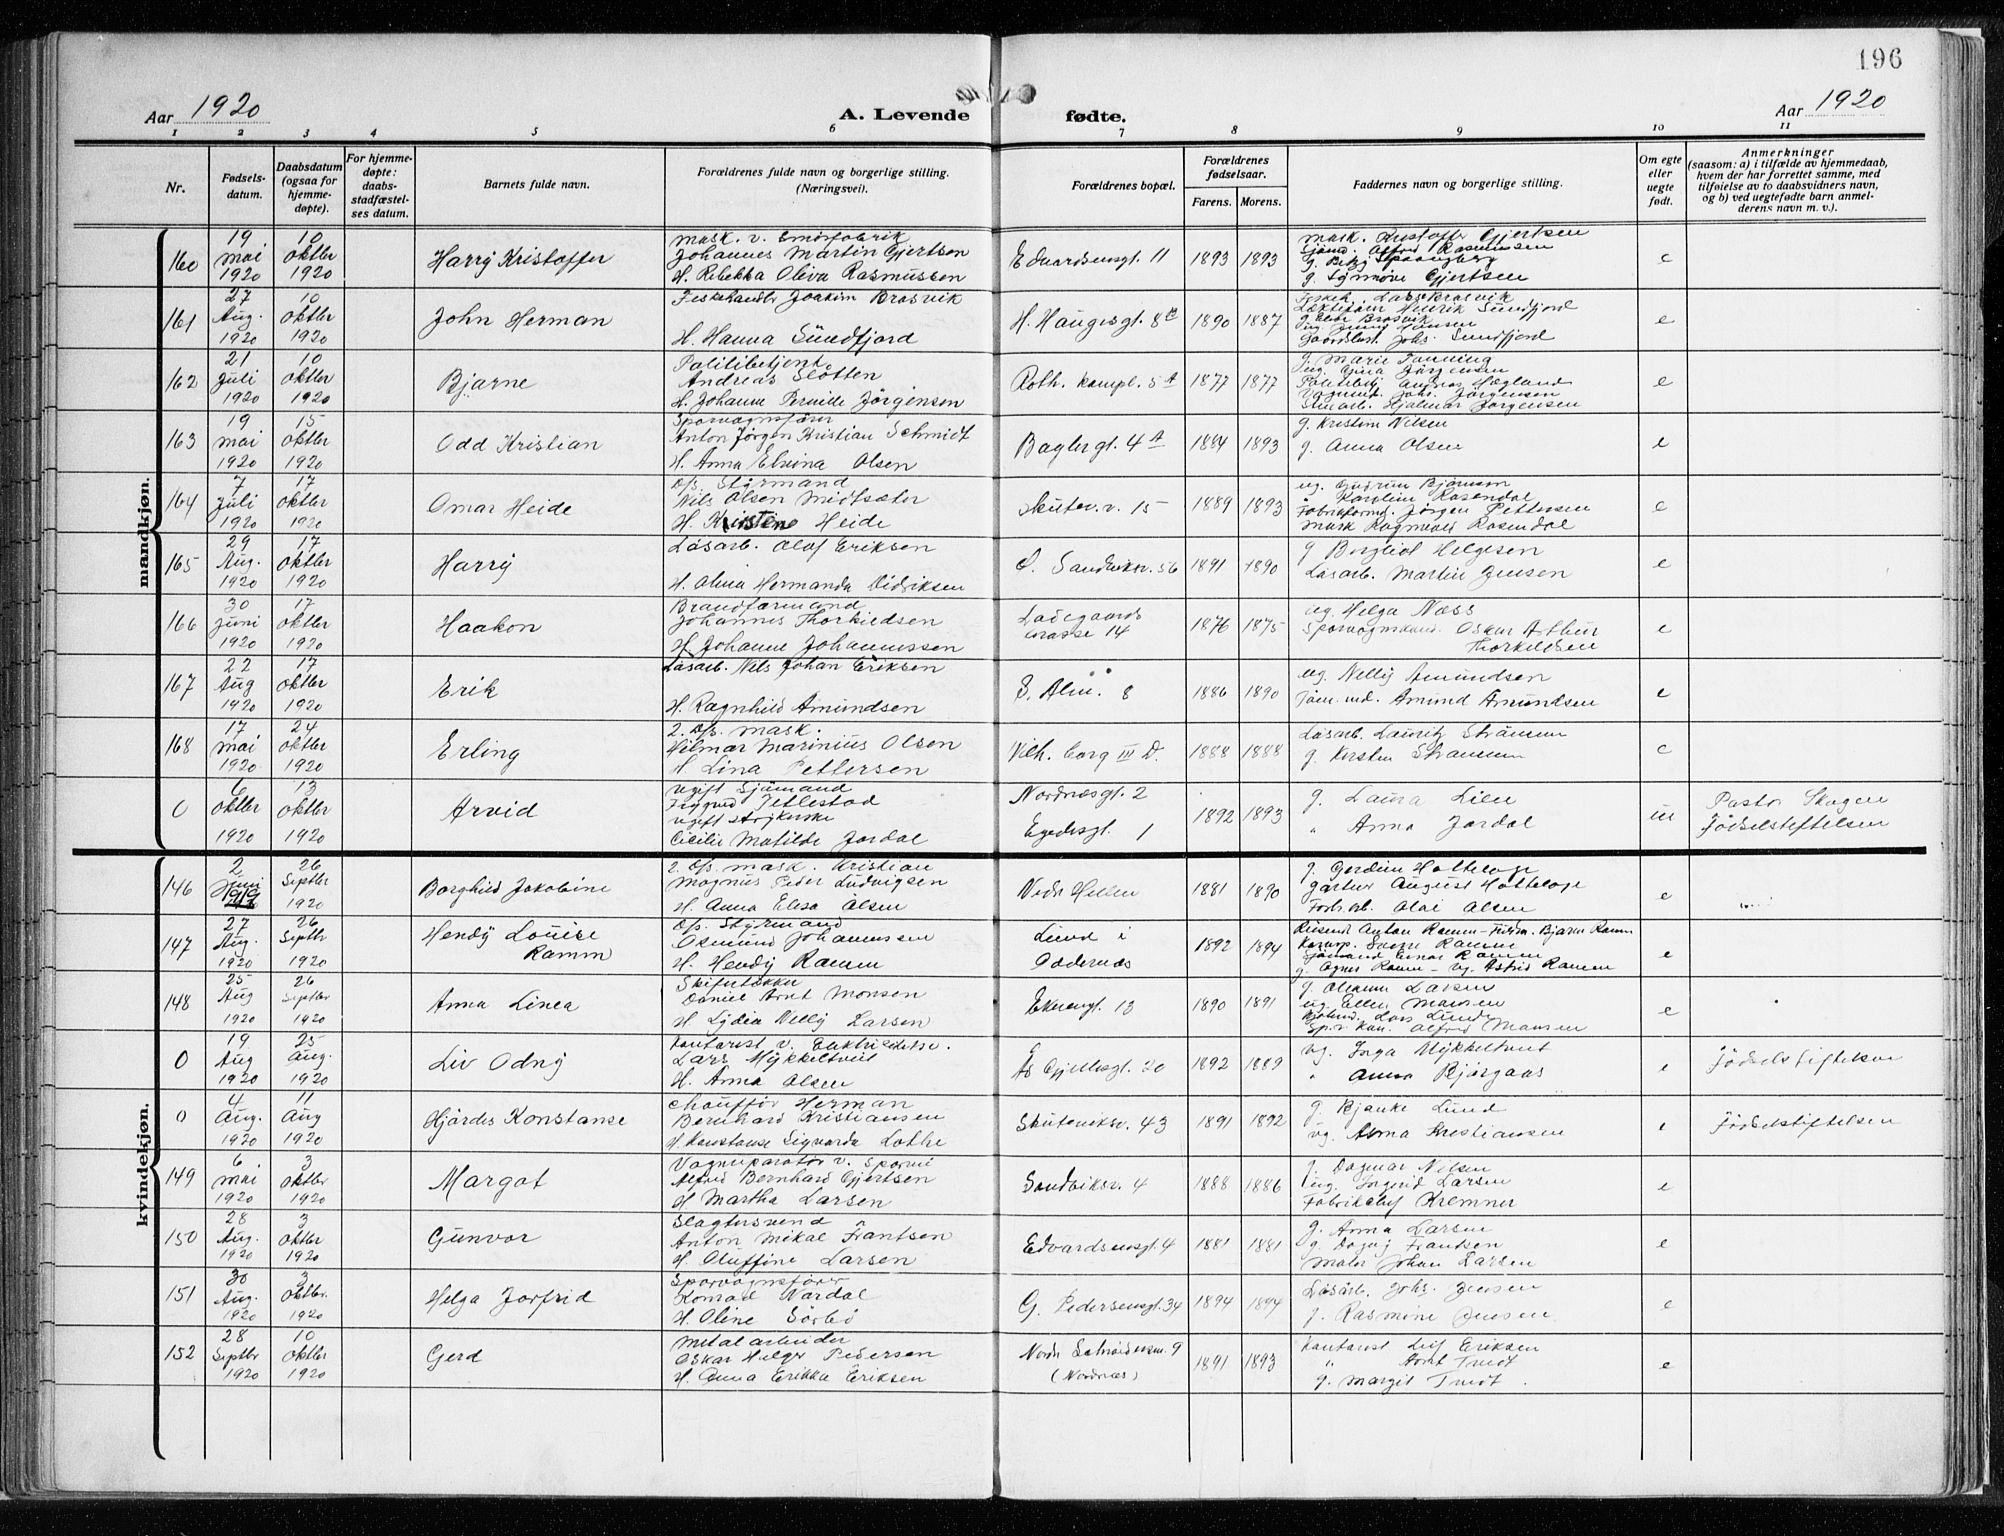 196
Aar 1920
A. Levende fødte.
Aar 1920
1 2 3 4 5 6 7 8 9 10 11
Nr.
Fødsels-
datum.
Daabsdatum
(ogsaa for
hjemme-
døpte).
For hjemme-
døpte:
daabs-
stadfæstel-
ses datum.
Barnets fulde navn.
Forældrenes fulde navn og borgerlige stilling.
(Næringsvei).
Forældrenes bopæl.
Forældrenes
fødselsaar.
Farens. Morens.
Faddernes navn og borgerlige stilling.
Om egte
eller
uegte
født.
Anmerkninger
(saasom: a) i tilfælde av hjemmedaab,
hvem der har forrettet samme, med
tilføielse av to daabsvidners navn,
og b) ved uegtefødte barn anmel-
derens navn m. v.).
mandkjøn.
160
19 mai 1920
10 oktbr 1920
Harry Kristoffer
mask. v. Smørfabrik
Johannes Martin Gjertsen
H. Rebekka Oliva Rasmussen
Edvardsensgt 11
1893 1893
mask. Kristoffer Gjertsen
Sjömd. Alfred Rasmussen
g. Synnøve Gjertsen
e
161
27 Aug. 1920
10 oktber 1920
John Herman
Fiskehandler Joakim Brosvik
H. Hanna Sundfjord
H. Haugesgt. 8B
1890 1887
Fiskeh. Lars Brosvik
Henrik Sundfjord
Johs. Sundfjord
e
162
21 Juli 1920
10 oktber 1920
Bjarne
Politibetjent
Andreas Slötten
H. Johanne Pernille Jörgensen
Roth. kompl. 5A
1877 1877
g. Marie Fanning
ug. Gina Jörgensen
Politibtj. Andreas Hægland
Vognmt. Johs. Jörgensen
Hjalmar Jørgensen
e
163
19 mai 1920
15 oktber 1920
Odd Kristian
Sporvognsförer
Anton Jørgen Kristian Schmidt
H. Anna Elvina Olsen
Baglergt. 4A
1884 1893
g. Kristine Nilsen
g. Anna Olsen
e
164
7 Juli 1920
17 oktber 1920
Omar Heide
D/s. Styrmand
Nils Olsen Midtsæter
H. Kristine Heide
Skutev. v. 15
1889 1893
ug. Gudrun Bjørnson
Karoline Rosendal
Fabrikformd. Jörgen Pettersen
Mask Ragnvald Rosendal
e
165
29 Aug. 1920
17 oktber 1920
Harry
Løsarb. Olaf Eriksen
H. Olina Hermanda Didriksen
Ö. Sandviksv. 56
1891 1890
g Borgliot Helgesen
Løsarb. Martin Jensen
e
166
30 Juni 1920
17 oktber 1920
Haakon
Brandformand
Johannes Thorkildsen
H. Johanne Johannessen
Ladegaards
grasse 14
1876 1875
ug. Helga Næss
Oskar Arthur
Thorkildsen
e
167
22 Aug 1920
17 oktber 1920
Erik
Løsarb. Nils Johan Eriksen
H. Ragnhild Amundsen
S. Alm. 8
1886 1890
ug. Nelly Amundsen
Amund Amundsen
e
168
17 mai 1920
24 oktber 1920
Erling
2. D/s. mask.
Vilmar Marinius Olsen
H. Lina Pettersen
Vilh. borg III D.
1888 1888
Løsarb. Lauritz Strömmen
g. Kirsten Strømmen
e
0
6 oktber 1920
13 oktber 1920
Arvid
ugift Sjømand
Sigurd Tetlestad
ugift strykerske
Cecilie Matilde Jordal
Nordnæsgt. 2
Egedesgt. 1
1892 1893
g. Laura Lien
" Anna Jordal
u
Pastor Skagen
Fødselstiftelsen
kvindekjøn.
146
2 Juni
26 Septbr 1920
Borghild Jakobine
2. D/s. mask. Kristian
Magnus Peder Ludvigsen
H. Anna Elisa Olsen
Nedr Hellen
1881 1890
g. Gerdine Hatteloge
gartner August Hatteloge
Forb. arb. Olai Olsen
e
147
27 Aug. 1920
26 Septbr 1920
Hendy Louise
Ramm
D/s. Styrmand
Osmund Johannessen
H. Hendy Ramm
Lund i
Oddernæs
1892 1894
Anton Ramm - Bjarne Ramm
Sverre Ramm
Sjømand Einar Ramm
g. Agnes Ramm - ug. Astrid Ramm
e
148
25 Aug 1920
26 Septbr 1920
Anna Linea
Skifertækker
Daniel Arnt Monsen
H. Lydia Nelly Larsen
Ekrengt. 13
1890 1891
g. Oleanna Larsen
ug. Ellen Mansen
Lars Lunde
Alfred Mansen
e
0
19 Aug 1920
25 Aug. 1920
Liv Odny
Kontorist v. Elektricitetsv.
Lars Mykkeltveit
H. Anna Olsen
Ås Gjellesgt. 20
1892 1889
ug. Inga Mykkeltveit
" Anna Bjørgaas
e
Fødselstiftelsen
0
4 Aug. 1920
11 Aug 1920
Hjördis Konstanse
Chauffør Herman
Bernhard Kristiansen
H. Konstanse Sigvarda Lothe
Skuteviksv. 43
1891 1892
g. Bjanka Lund
ug. Anna Kristiansen
e
Fødselstiftelsen
149
6 mai 1920
3 oktbr 1920
Margot
Vognreparatør v. Sporvei
Alfred Bernhard Gjertsen
H Martha Larsen
Sandviksv. 4
1888 1886
g. Dagmar Nilsen
ug. Ingerid Larsen
Kremner
e
150
28 Aug. 1920
3 oktber 1920
Gunvor
Slagtersvend
Anton Mikal Frantsen
H. Oluffine Larsen
Edvardsensgt. 4
1881 1881
g. Anna Larsen
g. Dagny Frantsen
Maler Johan Larsen
e
151
30 Aug. 1920
3 oktbr. 1920
Helga Jorfrid
Sporvognsfører
Konrad Nordal
H. Oline Sörbö
G. Pedersensgt. 34
1894 1894
Løsarb. Johs. Jensen
g. Rasmine Jensen
e
152
28 Septbr 1920
10 oktber 1920
Gerd
Metalarbeider
Oskar Helge Pedersen
H. Anna Erikka Eriksen
(Nordnæs)
1891 1893
Kontorist Leif Eriksen
" Arnt Tvedt
g. Margit Tvedt.
e